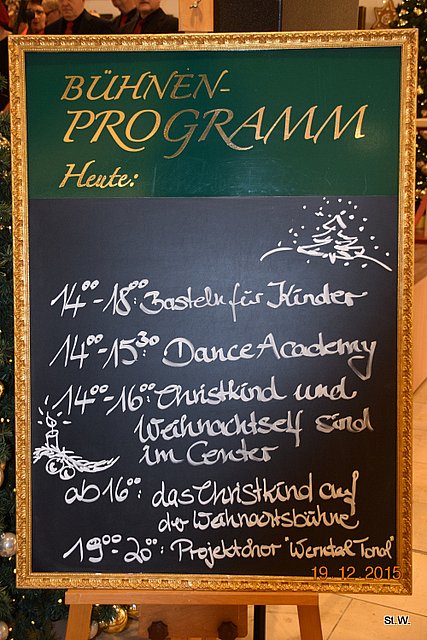 BÜHNEN-
PROGRAMM
Heute:
14⁰⁰-18⁰⁰: Basteln für Kinder
14⁰⁰-15³⁰ Dance Academy
14⁰⁰-16⁰⁰ Christkind und
Weihnachtself sind
im Center
ab 16⁰⁰: das Christkind auf
der Weihnachtsbühne
19⁰⁰-20⁰⁰: Projektchor "Total"
19.12.2015
St.W.